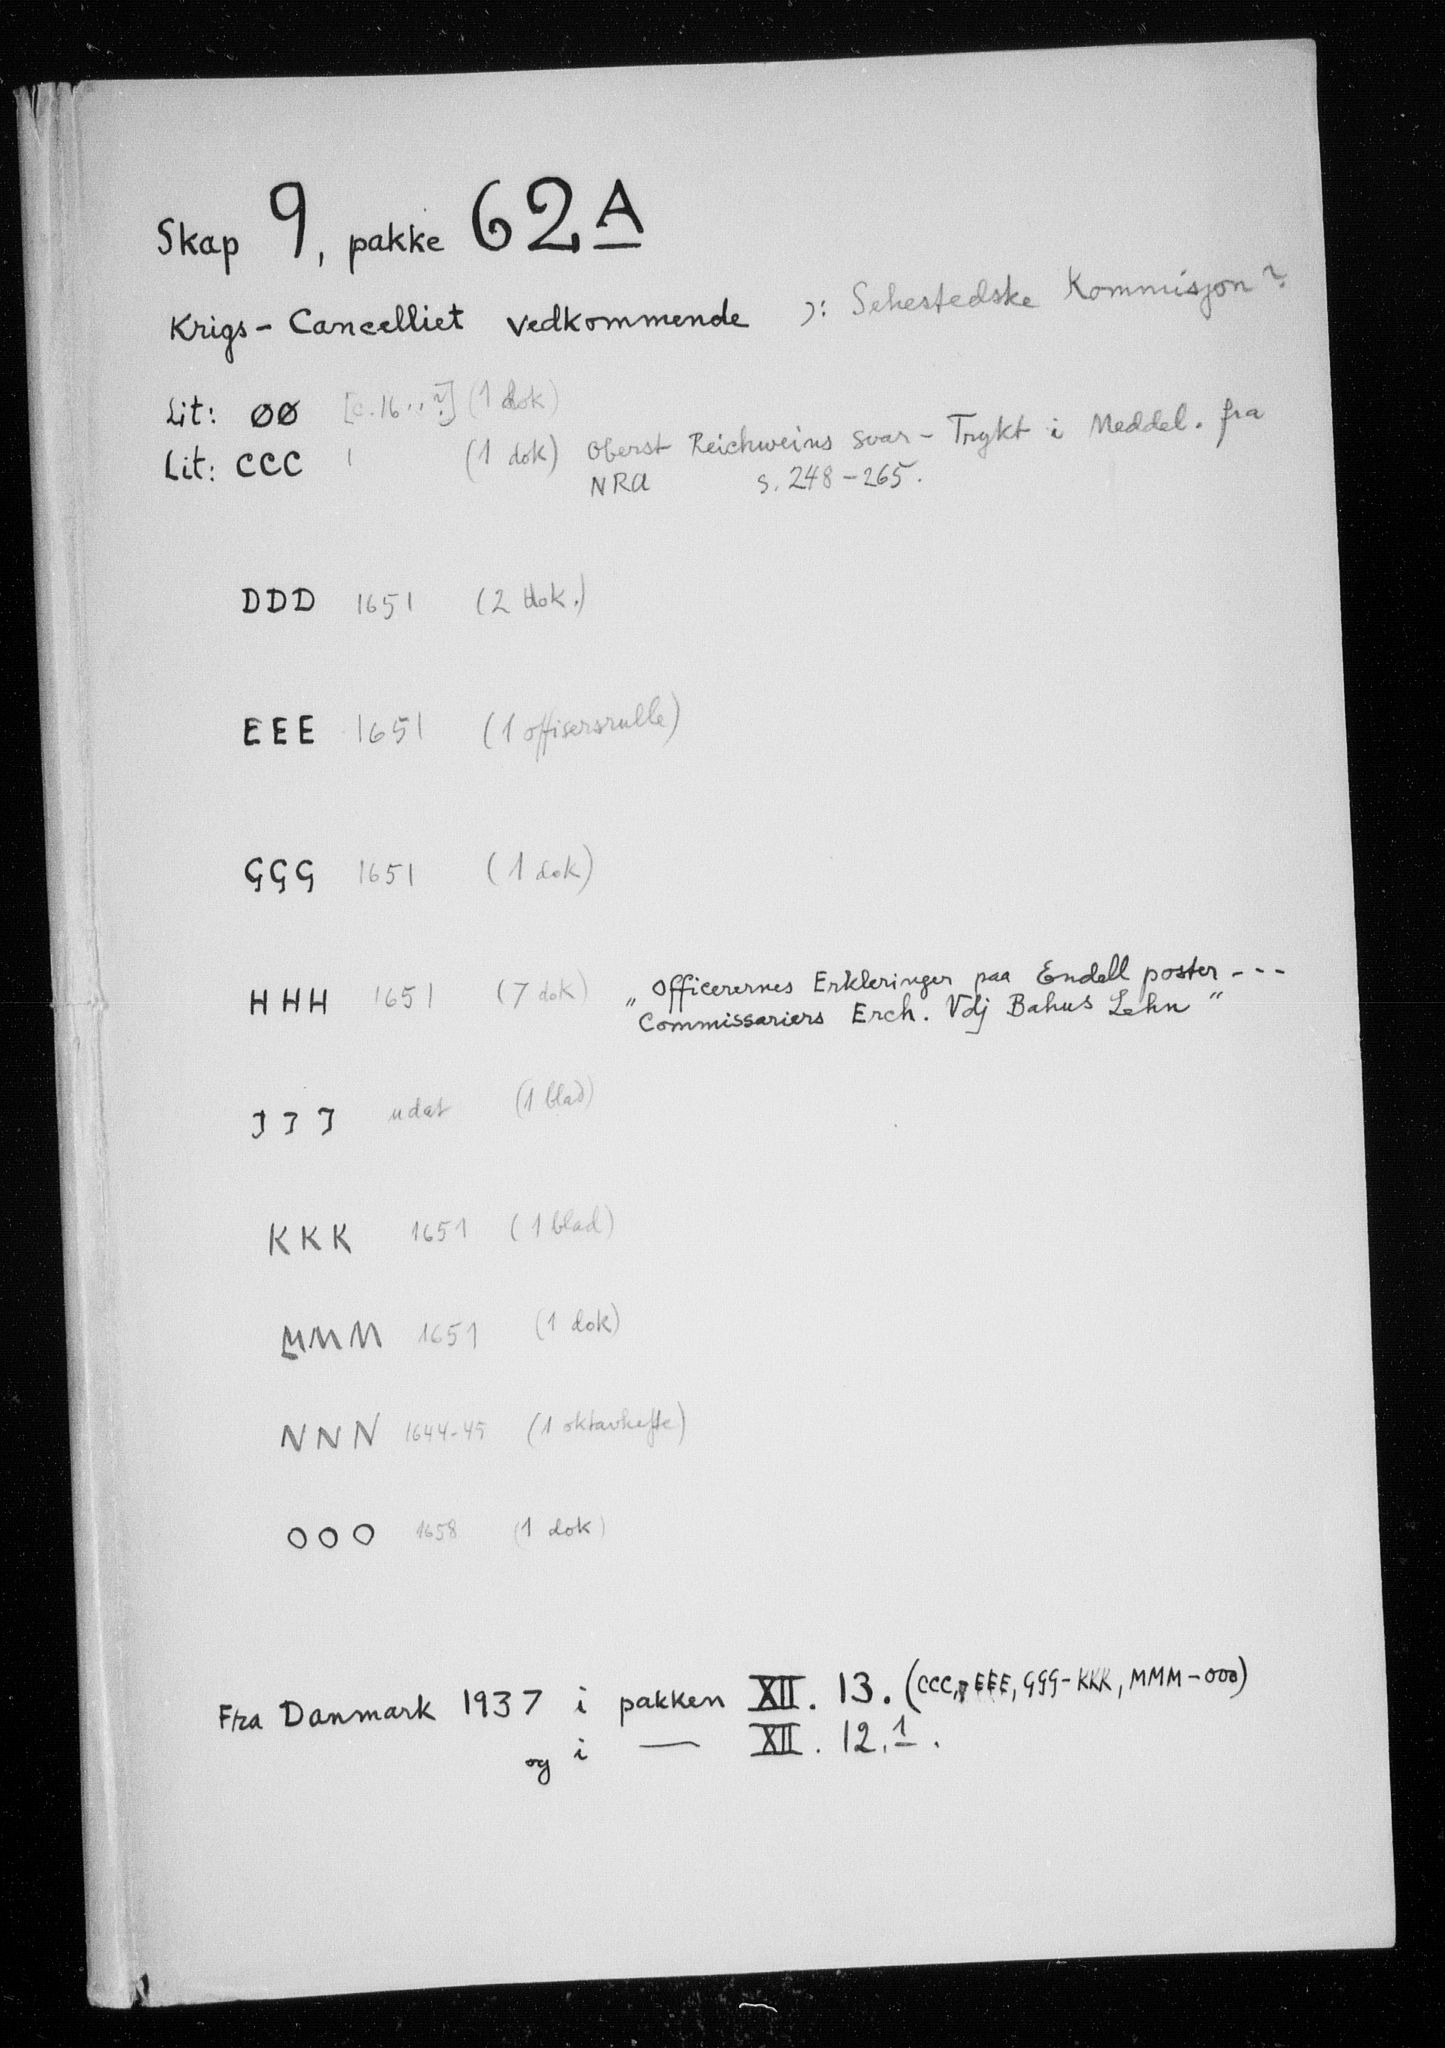 Skap 9, pakke 62A
Krigs-Cancelliet vedkommende ɔ: Sehestedske Kommisjon?
Lit: ØØ [c.16..?] (1 dok)
Lit: CCC (1 dok) Oberst Reichweins svar - Trykt i Meddel. fra
NRA s. 248-265.
DDD 1651 (2 dok.)
EEE 1651 (1 offisersrulle)
GGG 1651 (1 dok)
HHH 1651 (7 dok) „Officerernes Erkleringer paa Endell poster ---
Commissariers Erch. Vdj Bahus Lehn"
JJJ udat (1 blad)
KKK 1651 (1 blad)
MMM 1651 (1 dok)
NNN 1644-45 (1 oktavhefte)
OOO 1658 (1 dok)
Fra Danmark 1937 i pakken XII. 13. (CCC, EEE, GGG-KKK, MMM-OOO)
og i — XII. 12.1.